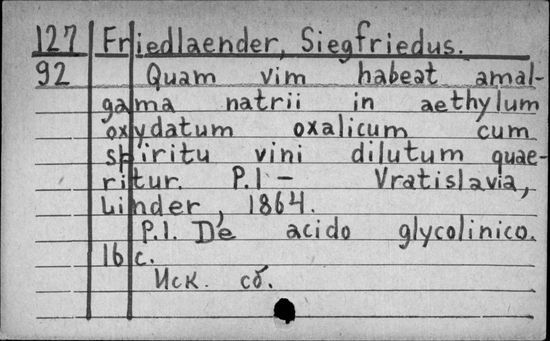 127 Friedlaender, Siegfriedus.
92 Quam vim habeat amal-
gama natrii in aethylum
oxydatum oxalicum cum
spiritu vini dilutum quae-
ritur. P.1 - Vratislavia,
Linder, 1864.
P.1. De acido glycolinico.
16 c.
Иск. сб.